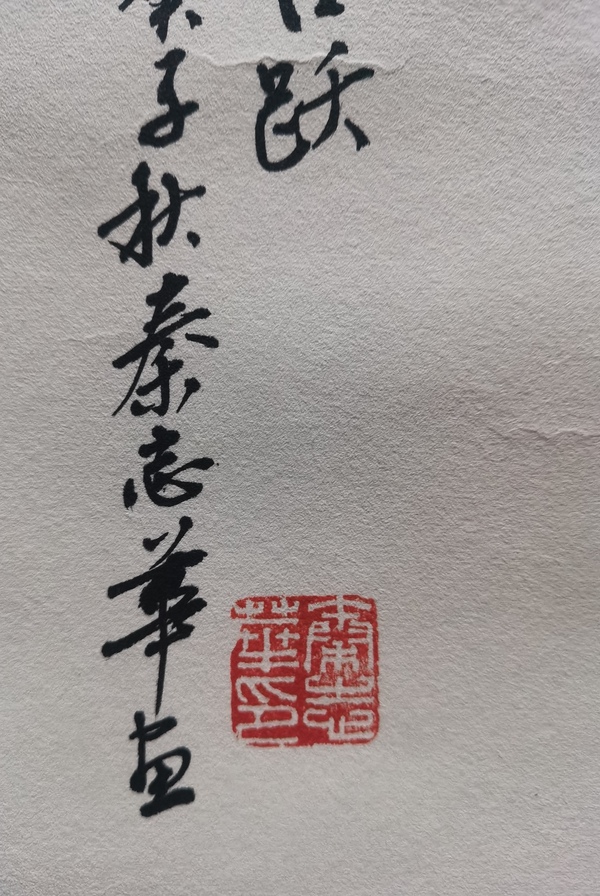 跃
庚子秋秦志華画
秦志
華印